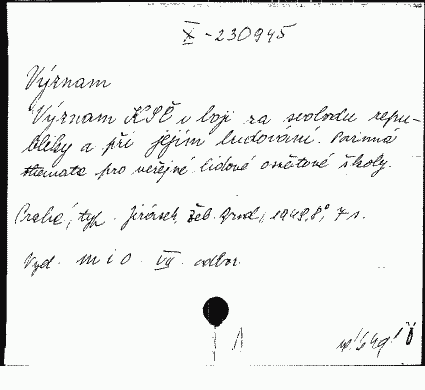 X-230945
Význam
Význam KSČ v boji za svobodu repu-
bliky a při jejím budování. Povinná
themata pro veřejné lidové osvětové školy.
Praha, typ. Jirásek, Žel. Brod, 1949, 8°, 7 s.
Vyd. m i o. VII. odbor.